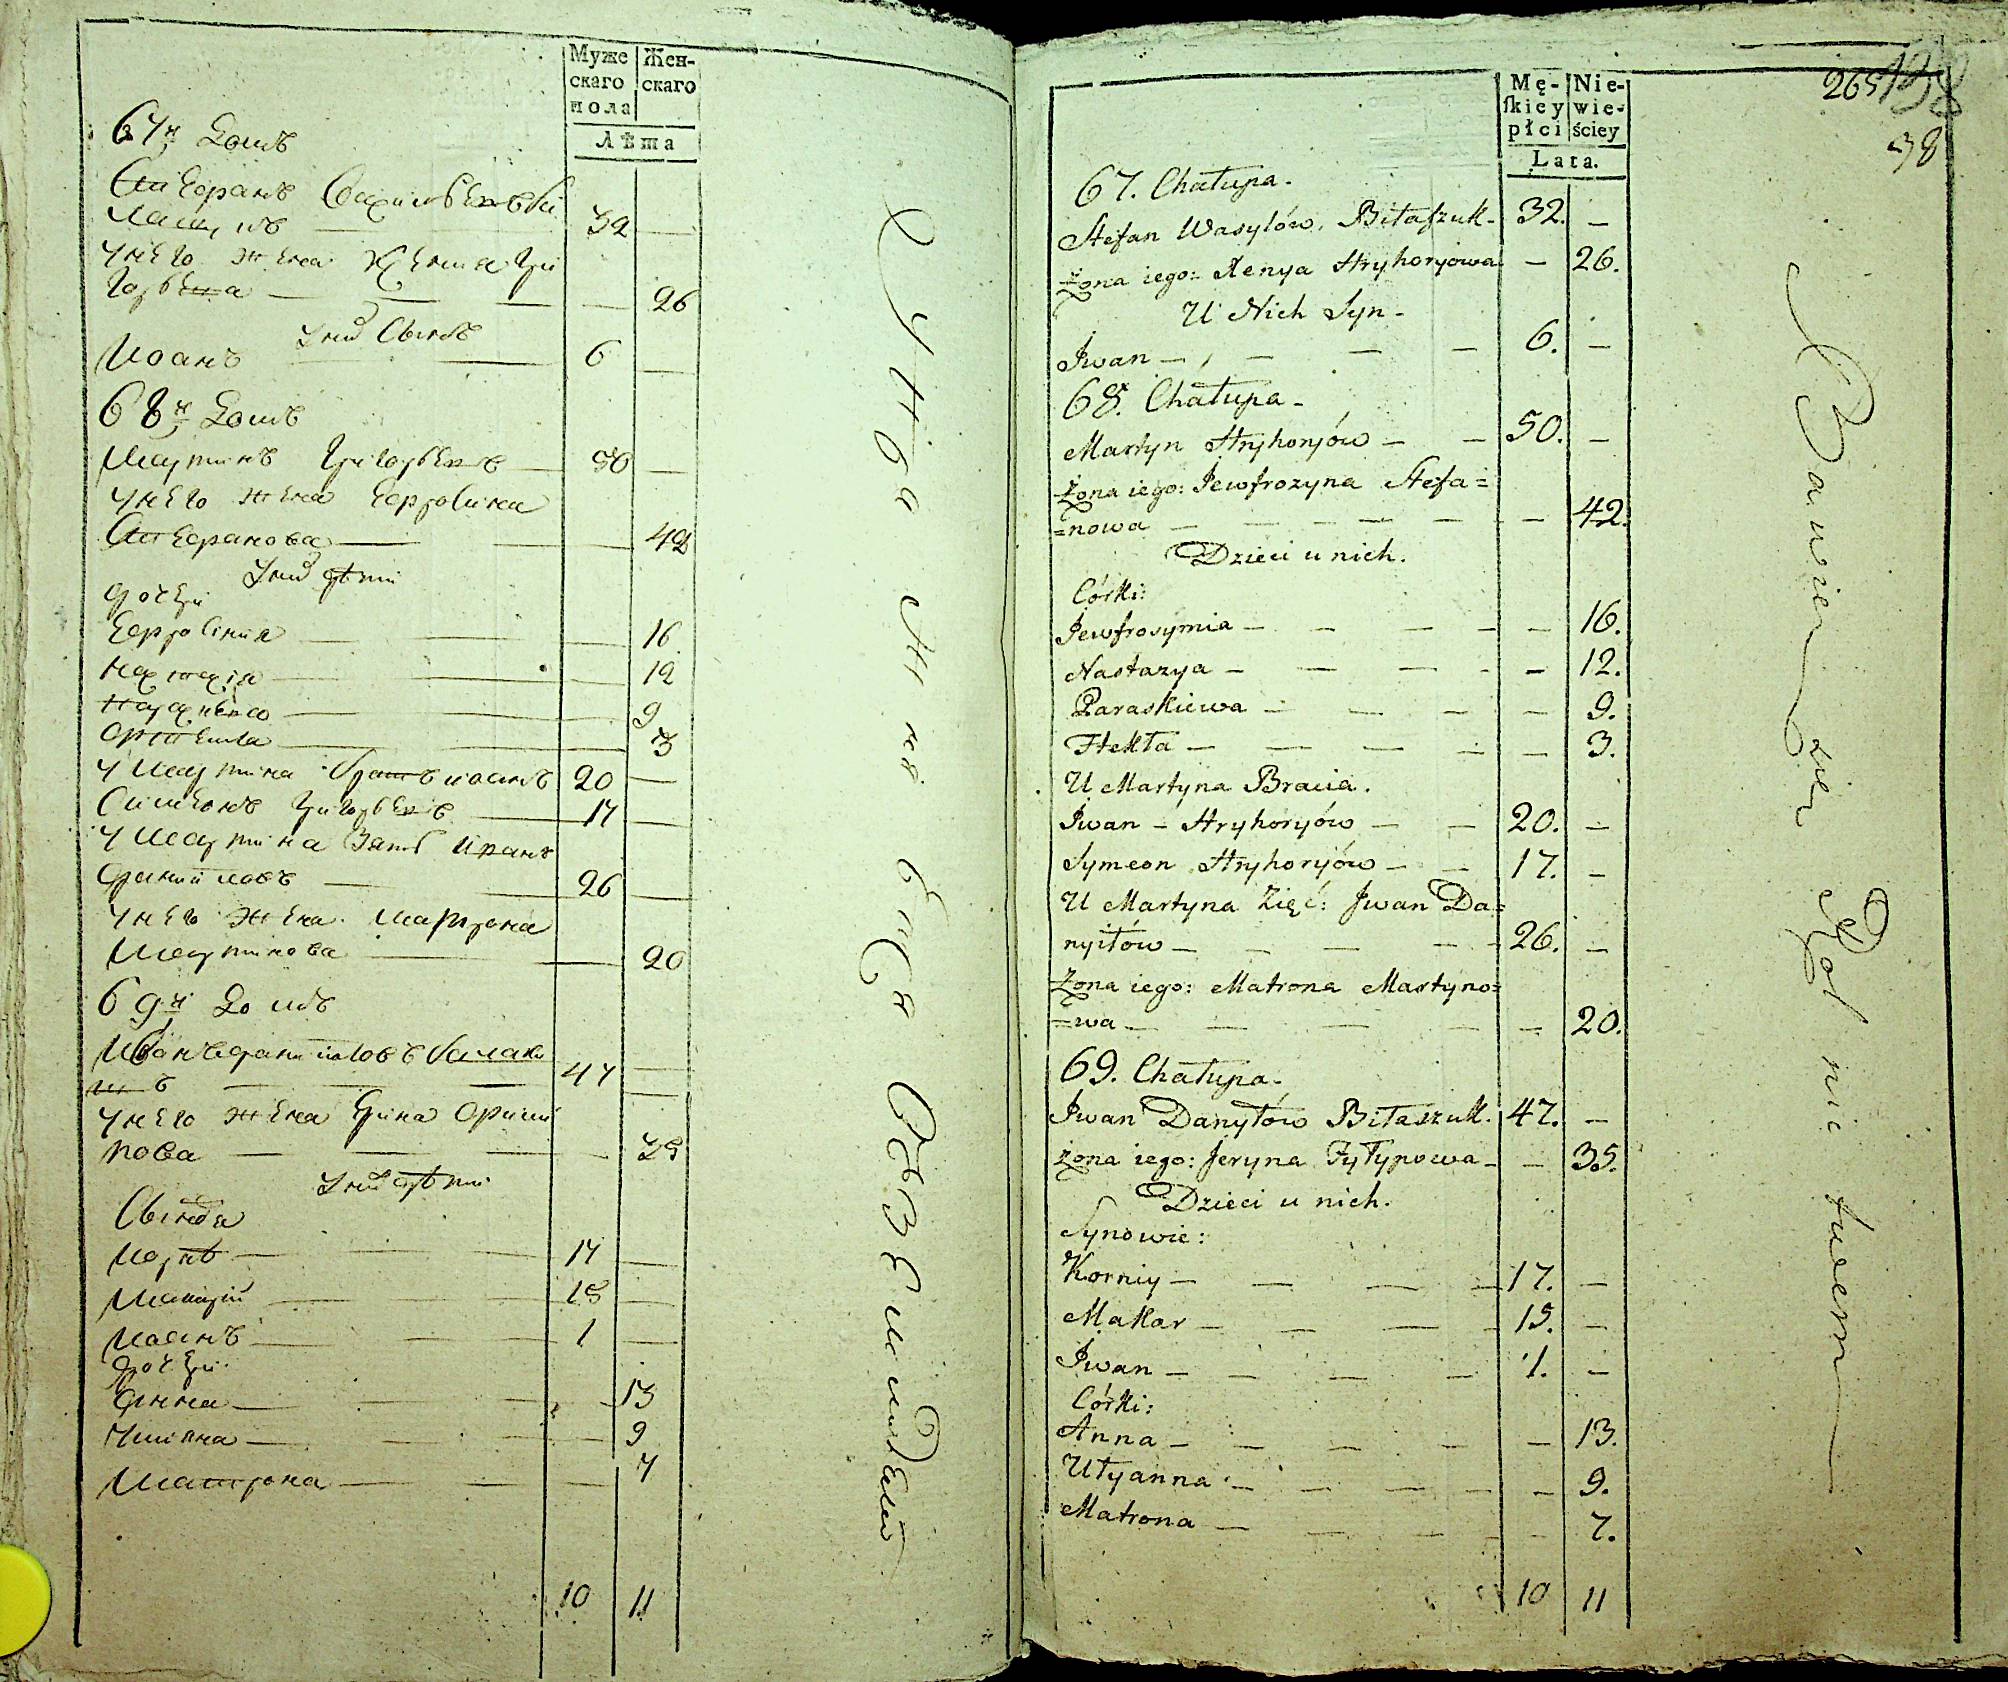 Муже Жен-
скаго скаго
пола
Лѣта
67й Домъ
Стефанъ Василъевъ Би
лашукъ — 32 —
у него жена Ксения Гри
горьева — — — 26
у них Сынъ
Иоанъ — — 6 —
68й Домъ
Мартинъ Григорьевъ — 50 —
у него жена Ефросина
Стефанова — — — 42
у них дѣти
дочери
Ефросиния — — — 16
Настасія — — — 12
— — 9
— — 3
у Мартина братъ иоанъ 20 —
Симеонъ Григорьевъ — 17 —
у Мартина Зять Иванъ
Даниловъ — — 26 —
у него жена Матрона
Мартинова — — 20
69й Домъ
Иванъ Даниловъ Билашу
къ — — — 47 —
у него жена Ерина Филип
пова — — — — 35
у них дѣти
Сыновя
Корнѣй — — — 17 —
Макарій — — 15 —
Иоанъ — — — 1 —
дочери
Анна — — — — 13
Улияна — — — — 9
Матрона — — — 7
10 11
265
38
Mę- Nie-
skiey wie-
płci ściey
Lata.
67. Chałupa.
Stefan Wasylów, Biłaszuk - 32. —
Żona iego: Xenya Hryhoryowa — 26.
U Nich Syn -
Jwan — — — — 6. —
68. Chałupa -
Martyn Hryhoryów — — 50. —
Żona iego: Jewfrozyna Stefa=
=nowa — — — — — — 42.
Dzieci u nich.
Córki:
Jewfrosymia — — — — — 16.
Nastazya — — — - - 12.
Paraskiewa — — — — — 9.
Tekla — — — — — 3.
U Martyna Bracia.
Jwan - Hryhoryów — — 20. —
Symeon Hryhoryów — — 17. —
U Martyna Zięć: Jwan Da=
nyłów — — — — — 26. —
Żona iego: Matrona Martyno=
=wa — — — — — 20.
69. Chałupa.
Jwan Danyłów Biłaszuk. 47. —
żona iego: Jeryna Fyłypowa - — 35.
Dzieci u nich.
Synowie:
Korniy — — — — 17. —
Makar — — — — 15. —
Jwan — — — — — 1. —
Córki:
Anna — — — — — 13.
Ułyanna — — — — — — 9.
Matrona — — — — 7.
10 11